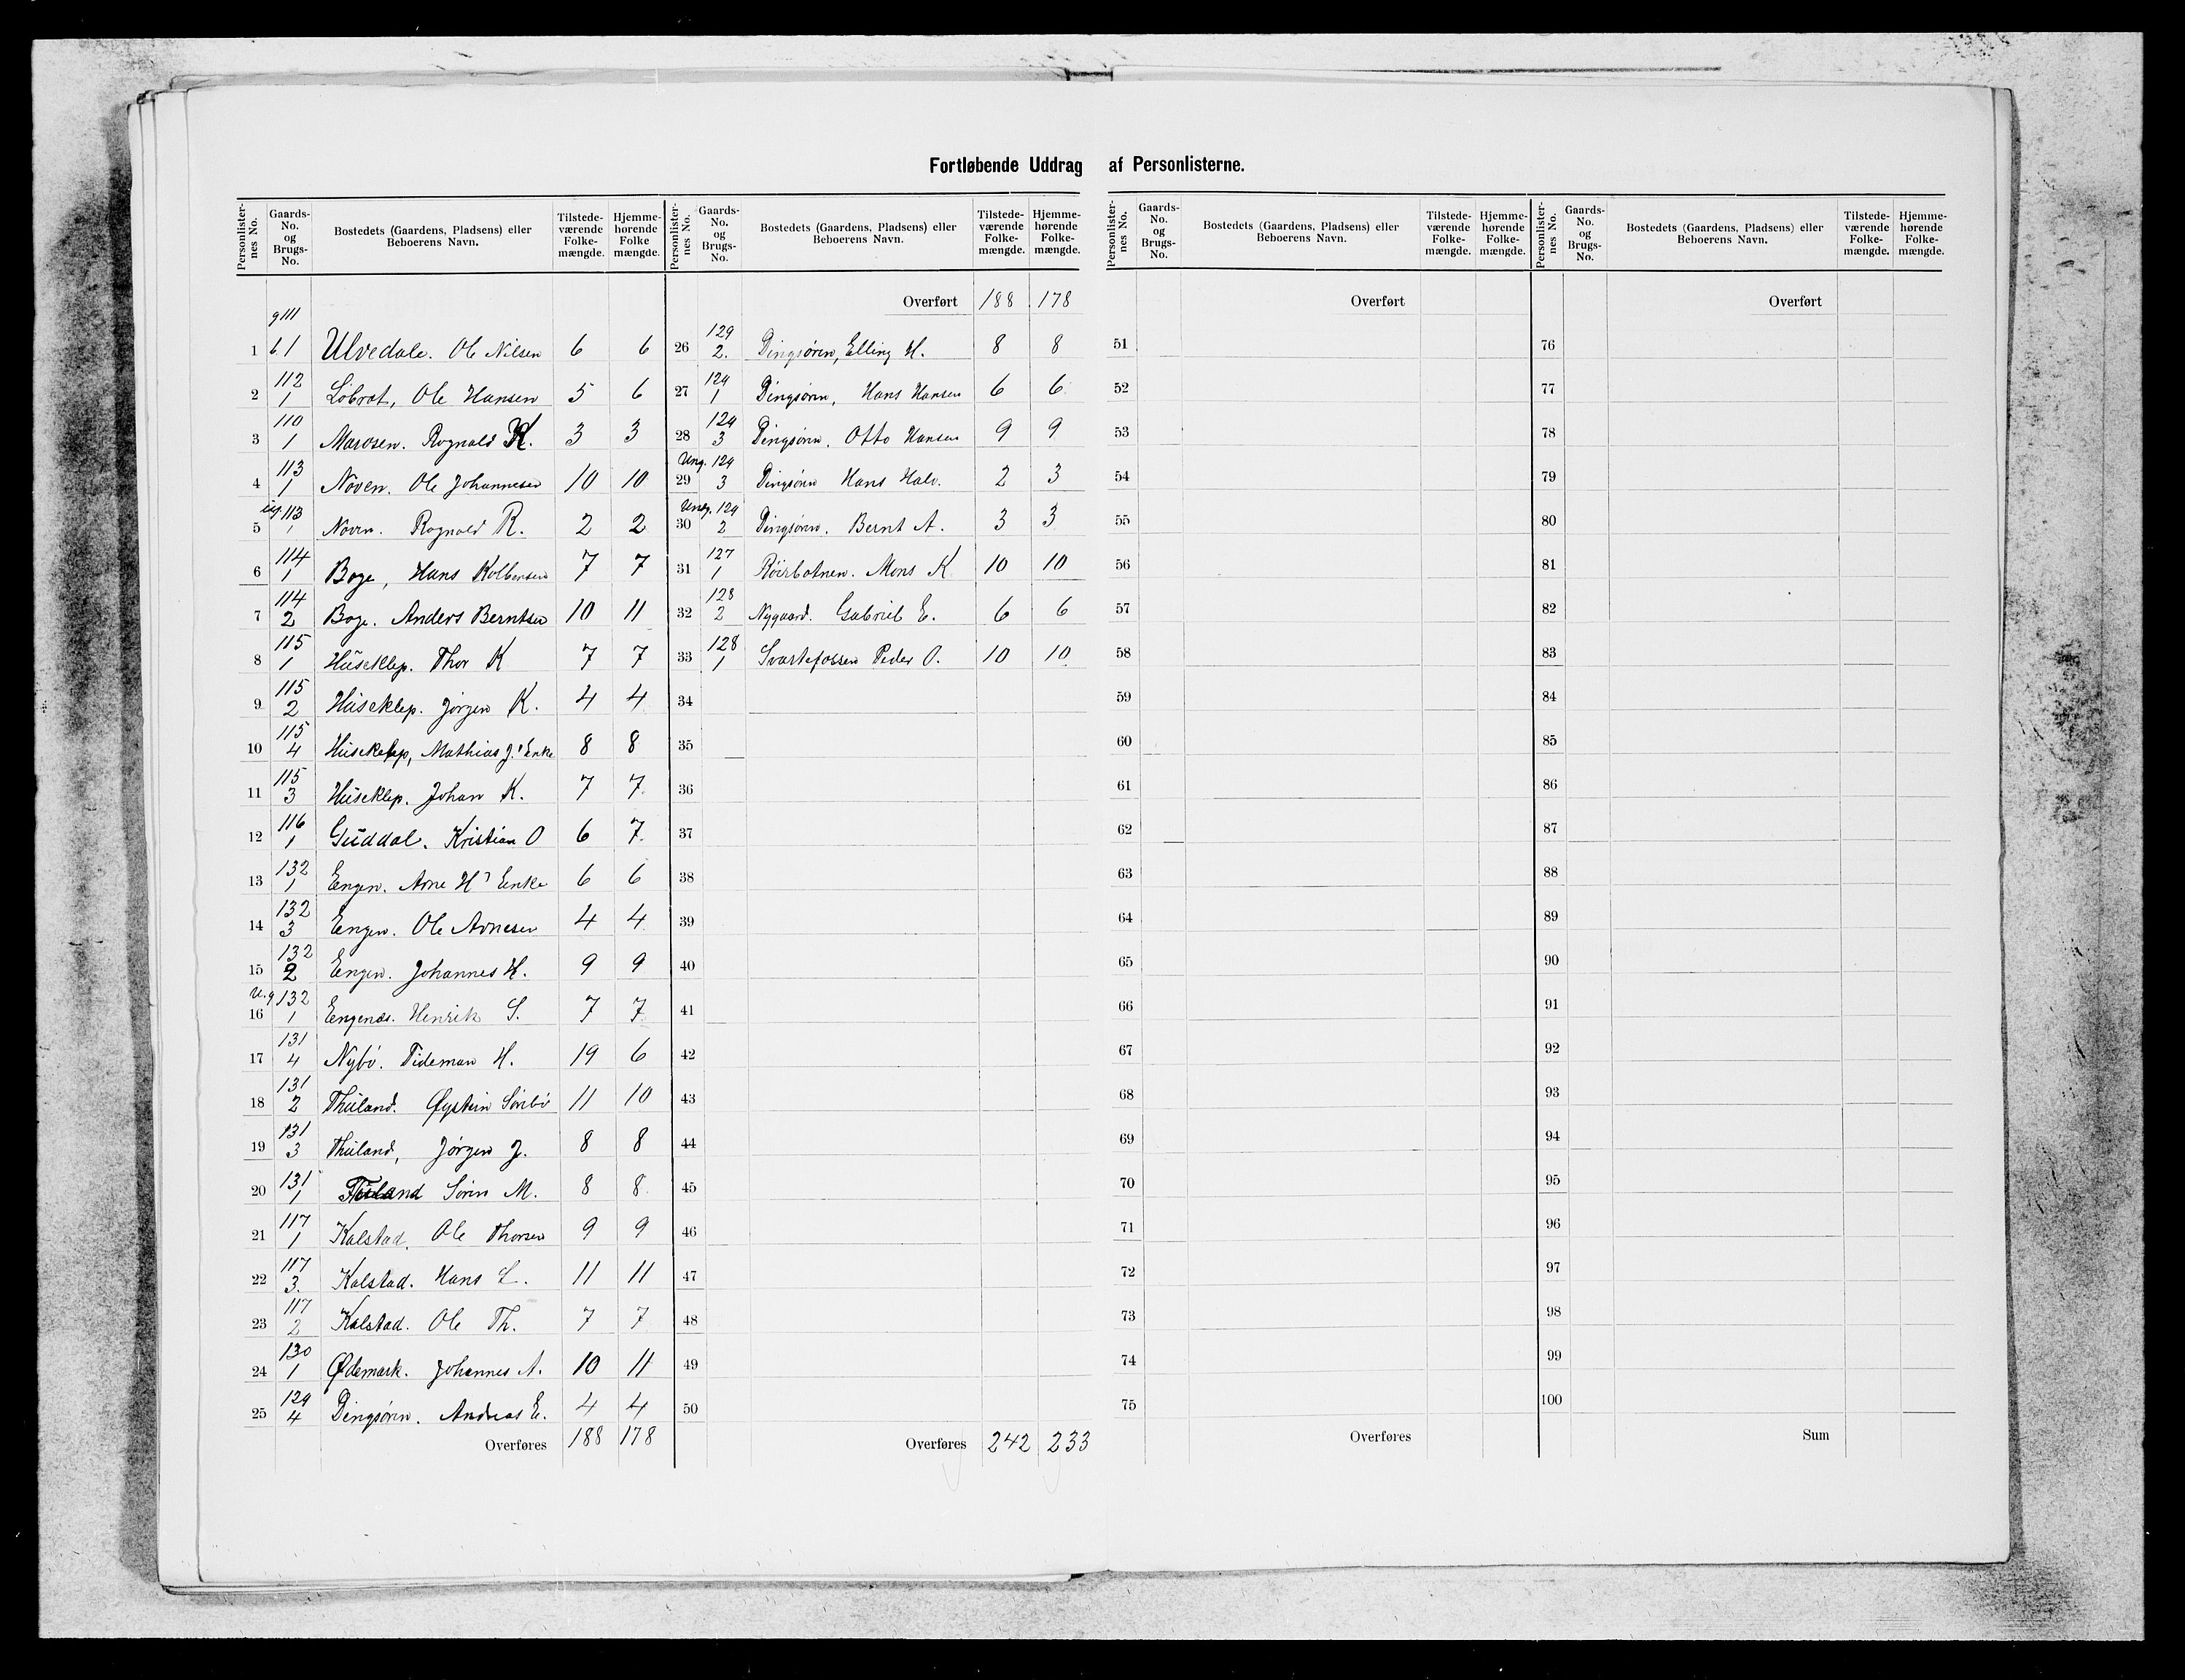 Fortløbende Uddrag af Personlisterne.
Personlisternes No. Gaards-No. og Brugs-No. Bostedets (Gaardens, Pladsens) eller Beboerens Navn. Tilstedeværende Folkemængde. Hjemmehørende Folkemængde.
g 111
1 b.1 Ulvedale. Ole Nilsen 6 6
112
2 1 Ole Hansen 5 6
110
3 1 Rognald K. 3 3
113
4 1 Noven. Ole Johannesen 10 10
113
5 1 Noven. Rognald R. 2 2
114
6 1 Boge, Hans Kolbensen 7 7
114
7 2 Boge. Anders Berntsen 10 11
115
8 1 Huseklep. Thor K 7 7
115
9 2 Huseklep. Jørgen K. 4 4
115
10 4 Huseklep, Mathias J.' Enke 8 8
115
11 3 Huseklep. Johan K. 7 7
116
12 1 Guddal. Kristian O 6 7
132
13 1 Engen. Arne H' Enke 6 6
132
14 3 Engen. Ole Arnesen 4 4
132
15 2 Engen. Johannes H. 9 9
U.g 132
16 1 Engenæs. Henrik S. 7 7
131
17 4 Nybö. Tideman H. 19 6
131
18 2 Thuland. Øystein Sörbö 11 10
131
19 3 Thuland, Jörgen J. 8 8
131
20 1 Thuland Sören M. 8 8
117
21 1 Kalstad. Ole Thorsen 9 9
117
22 3. Kalstad. Hans L. 11 11
117
23 2 Kalstad. Ole Th. 7 7
130
24 1 Ødemark. Johannes A. 10 11
129
25 4 Dingsören. Andreas E. 4 4
Overføres 188 178
Personlisternes No. Gaards-No. og Brugs-No. Bostedets (Gaardens, Pladsens) eller Beboerens Navn. Tilstedeværende Folkemængde. Hjemmehørende Folkemængde.
Overført 188 178
129
26 2. Dingsören, Elling H. 8 8
129
27 1 Dingsören, Hans Hansen 6 6
129
28 3 Dingsören, Otto Hansen 9 9
Ung. 129
29 3 Dingsören Hans Halv. 2 3
Ung. 129
30 2 Dingsören. Bernt A. 3 3
127
31 1 Röirbotnen. Mons K 10 10
128
32 2 Nygaard. Gabriel E. 6 6
128
33 1 Svartefossen Peder O. 10 10
34
35
36
37
38
39
40
41
42
43
44
45
46
47
48
49
50
Overføres 242 233
Personlisternes No. Gaards-No. og Brugs-No. Bostedets (Gaardens, Pladsens) eller Beboerens Navn. Tilstedeværende Folkemængde. Hjemmehørende Folkemængde.
Overført
51
52
53
54
55
56
57
58
59
60
61
62
63
64
65
66
67
68
69
70
71
72
73
74
75
Overføres
Personlisternes No. Gaards-No. og Brugs-No. Bostedets (Gaardens, Pladsens) eller Beboerens Navn. Tilstedeværende Folkemængde. Hjemmehørende Folkemængde.
Overført
76
77
78
79
80
81
82
83
84
85
86
87
88
89
90
91
92
93
94
95
96
97
98
99
100
Sum